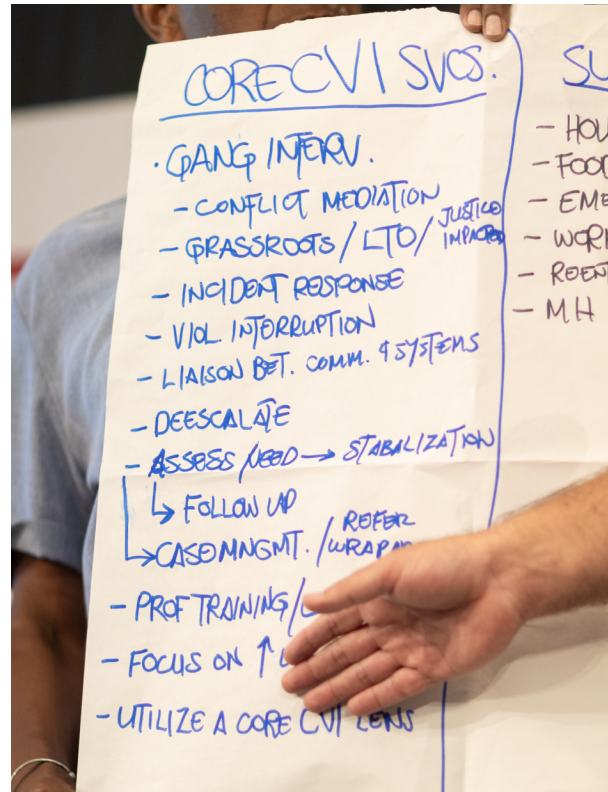 CORE CVI SVCS.
· GANG INTERV.
- CONFLICT MEDIATION
- GRASSROOTS / LTO / JUSTICE IMPACTED
- INCIDENT RESPONSE
- VIOL. INTERRUPTION
- LIAISON BET. COMM. & SYSTEMS
- DEESCALATE
- ASSESS NEED → STABALIZATION
↳ FOLLOW UP
↳ CASE MNGMT. / REFER
- PROF TRAINING /
- FOCUS ON ↑
- UTILIZE A CORE CVI LENS
- HOU
- FOOD
- EME
- WORK
- REENT
- MH